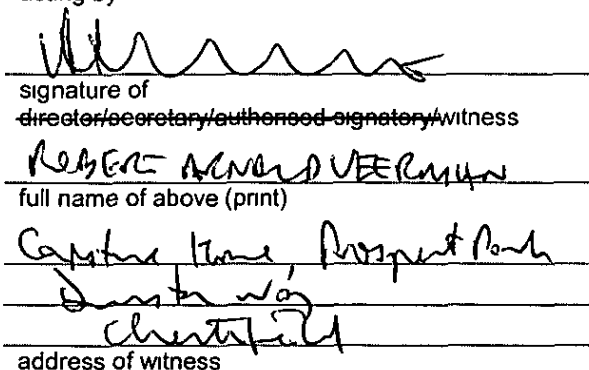 signature of
director/secretary/authorised signatory/witness
ROBERT ARNOLD VEERMAN
full name of above (print)
Capitur House, Prospect Park
Dunston Way
Chesterfield
address of witness